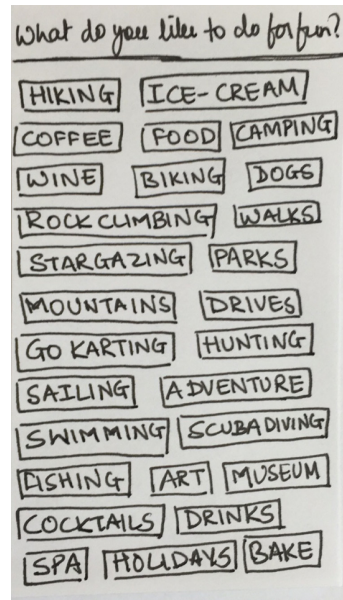 What do you like to do for fun?
HIKING ICE-CREAM
COFFEE FOOD CAMPING
WINE BIKING DOGS
ROCK CLIMBING WALKS
STARGAZING PARKS
MOUNTAINS DRIVES
GO KARTING HUNTING
SAILING ADVENTURE
SWIMMING SCUBA DIVING
FISHING ART MUSEUM
COCKTAILS DRINKS
SPA HOLIDAYS BAKE